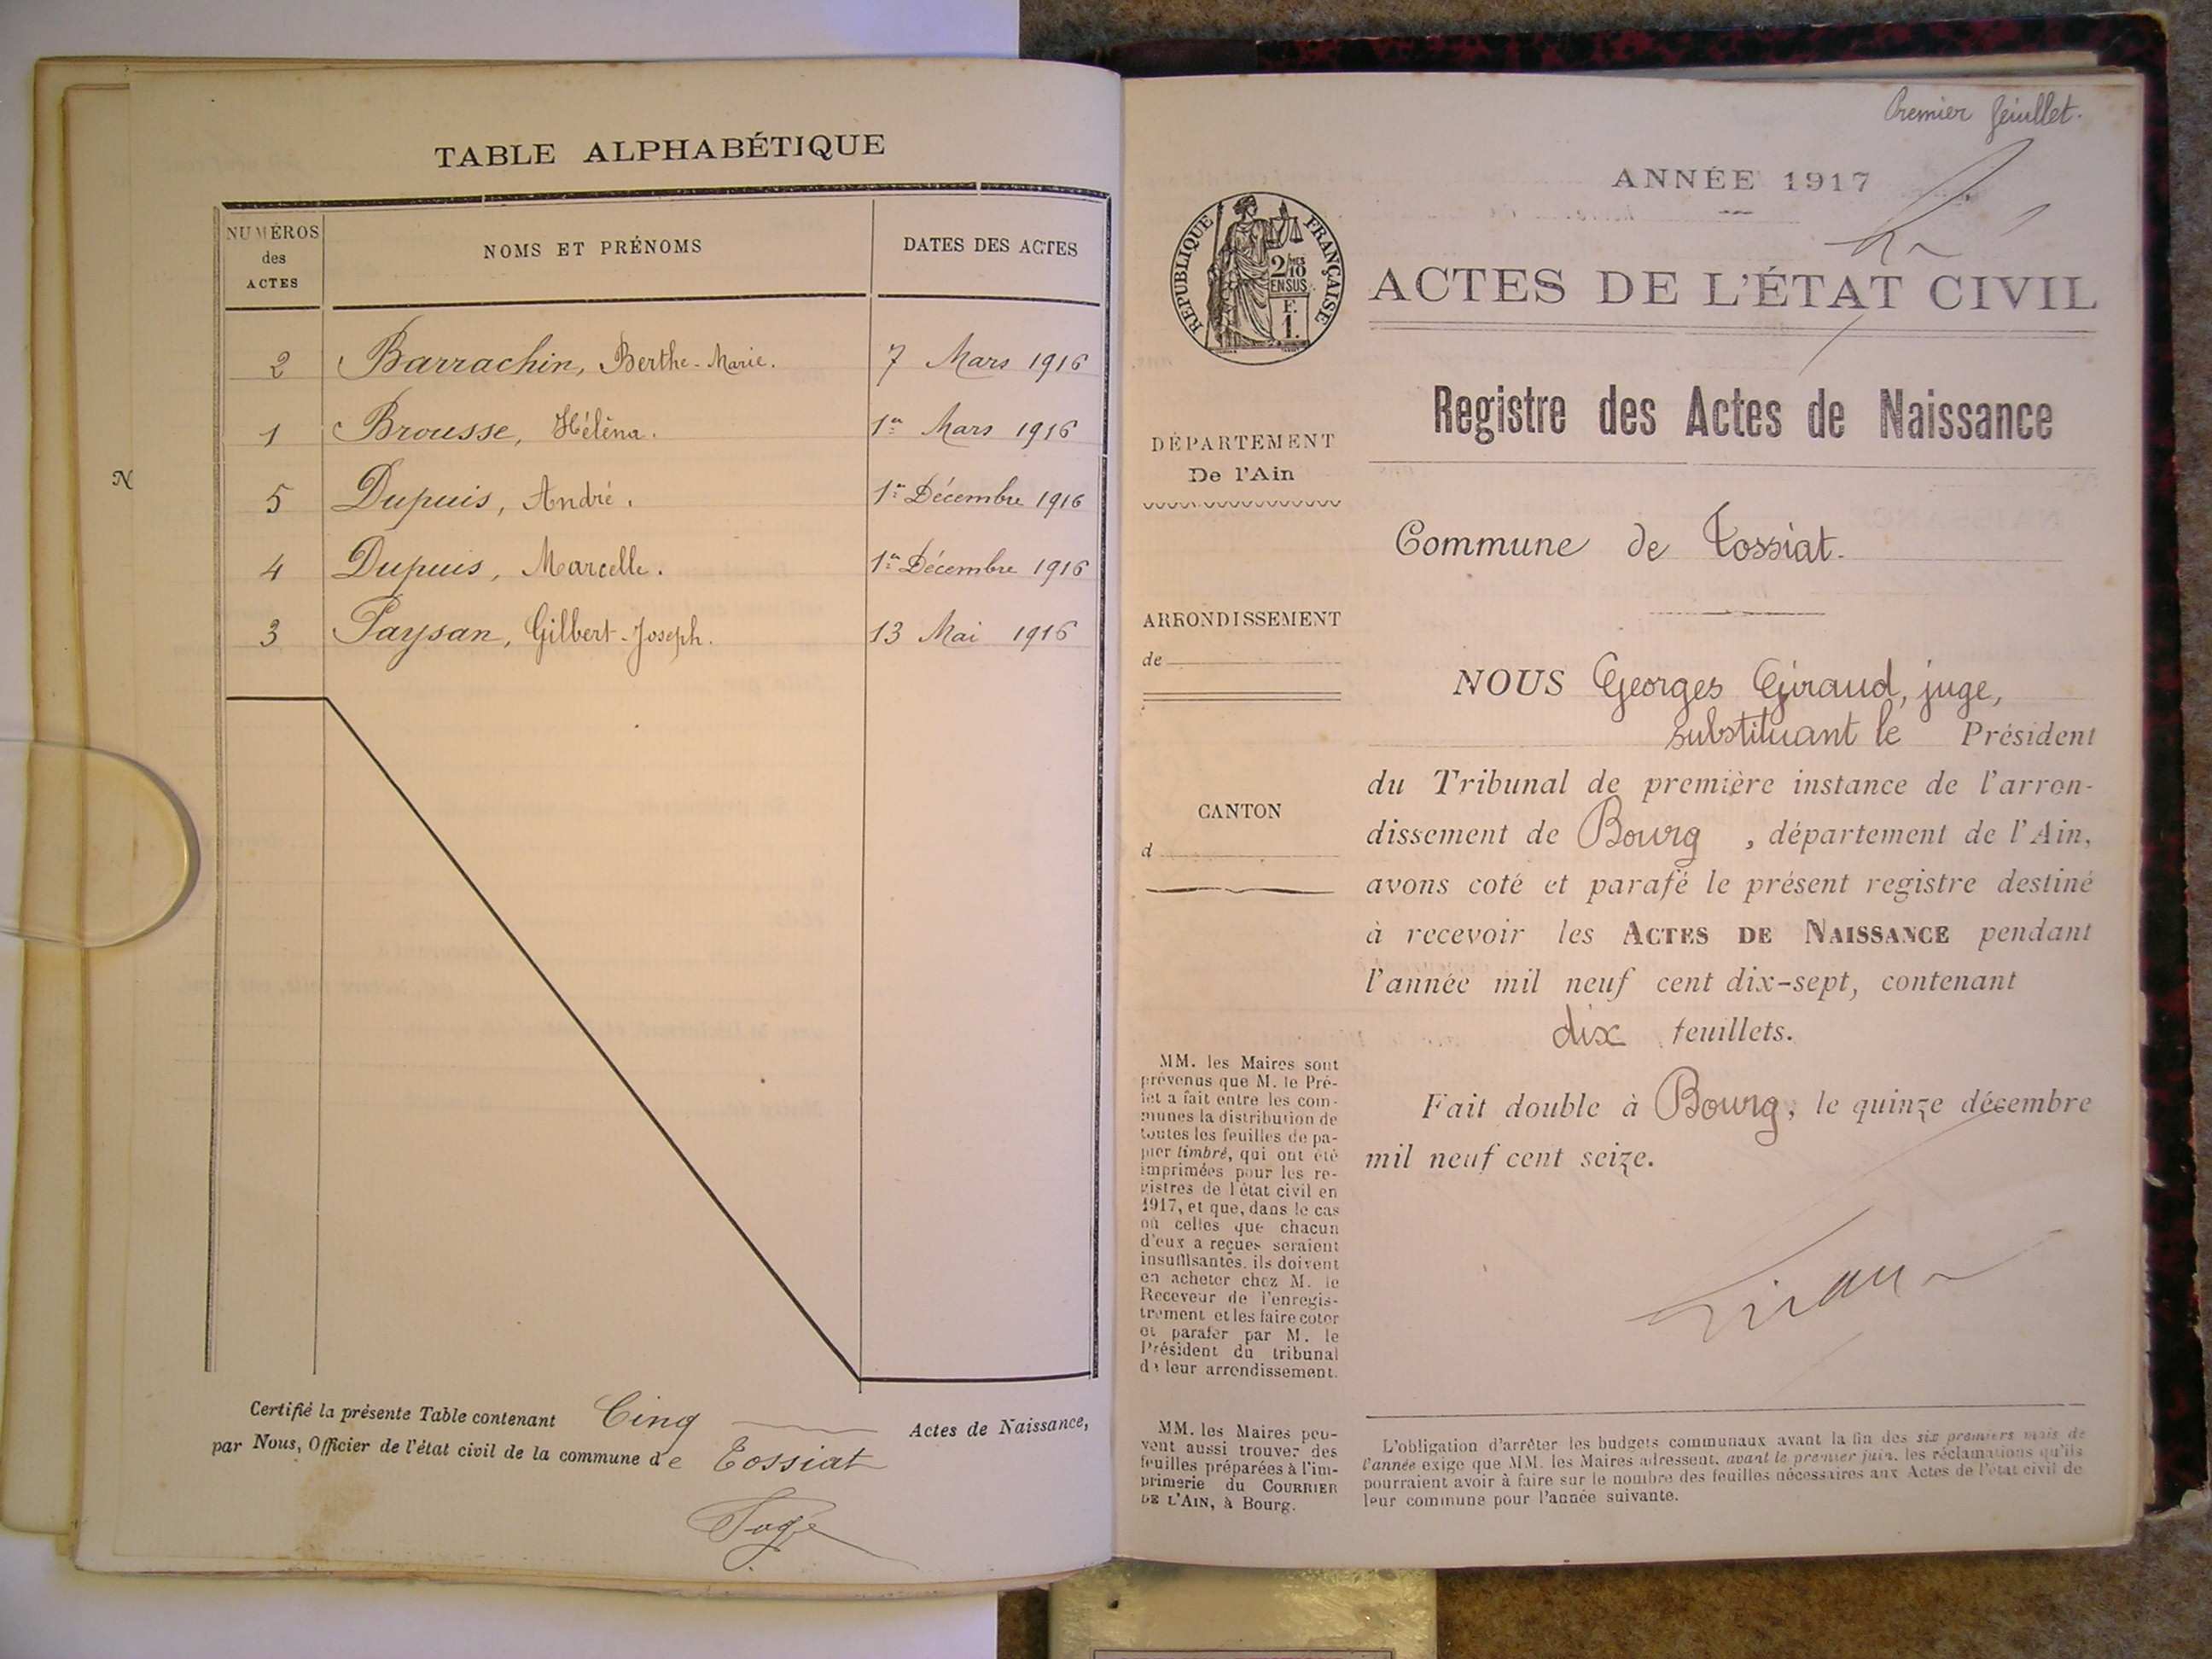 TABLE ALPHABÉTIQUE
NUMÉROS
des
ACTES
NOMS ET PRÉNOMS
DATES DES ACTES
2 Barrachin, Berthe-Marie. 7 Mars 1916
1 Brousse, Hélèna. 1er Mars 1916
5 Dupuis, André. 1er Décembre 1916
4 Dupuis, Marcelle. 1er Décembre 1916
3 Paysan, Gilbert-Joseph. 13 Mai 1916
N
Certifié la présente Table contenant Cinq Actes de Naissance,
par Nous, Officier de l'état civil de la commune de Tossiat
Premier feuillet.
ANNÉE 1917
RÉPUBLIQUE FRANÇAISE
2/10
EN SUS
F.
1.
ACTES DE L'ÉTAT CIVIL
Registre des Actes de Naissance
DÉPARTEMENT
De l'Ain
Commune de Tossiat.
ARRONDISSEMENT
de
CANTON
d
NOUS Georges Giraud, juge,
substituant le Président
du Tribunal de première instance de l'arron-
dissement de Bourg, département de l'Ain,
avons coté et parafé le présent registre destiné
à recevoir les ACTES DE NAISSANCE pendant
l'année mil neuf cent dix-sept, contenant
dix feuillets.
Fait double à Bourg, le quinze décembre
mil neuf cent seize.
Giraud
MM. les Maires sont
prévenus que M. le Pré-
fet a fait entre les com-
munes la distribution de
toutes les feuilles de pa-
pier timbré, qui ont été
imprimées pour les re-
gistres de l'état civil en
1917, et que, dans le cas
où celles que chacun
d'eux a reçues seraient
insuffisantes, ils doivent
en acheter chez M. le
Receveur de l'enregis-
trement et les faire coter
et parafer par M. le
Président du tribunal
de leur arrondissement.
MM. les Maires peu-
vent aussi trouver des
feuilles préparées à l'im-
primerie du COURRIER
DE L'AIN, à Bourg.
L'obligation d'arrêter les budgets communaux avant la fin des six premiers mois de
l'année exige que MM. les Maires adressent, avant le premier juin, les réclamations qu'ils
pourraient avoir à faire sur le nombre des feuilles nécessaires aux Actes de l'état civil de
leur commune pour l'année suivante.